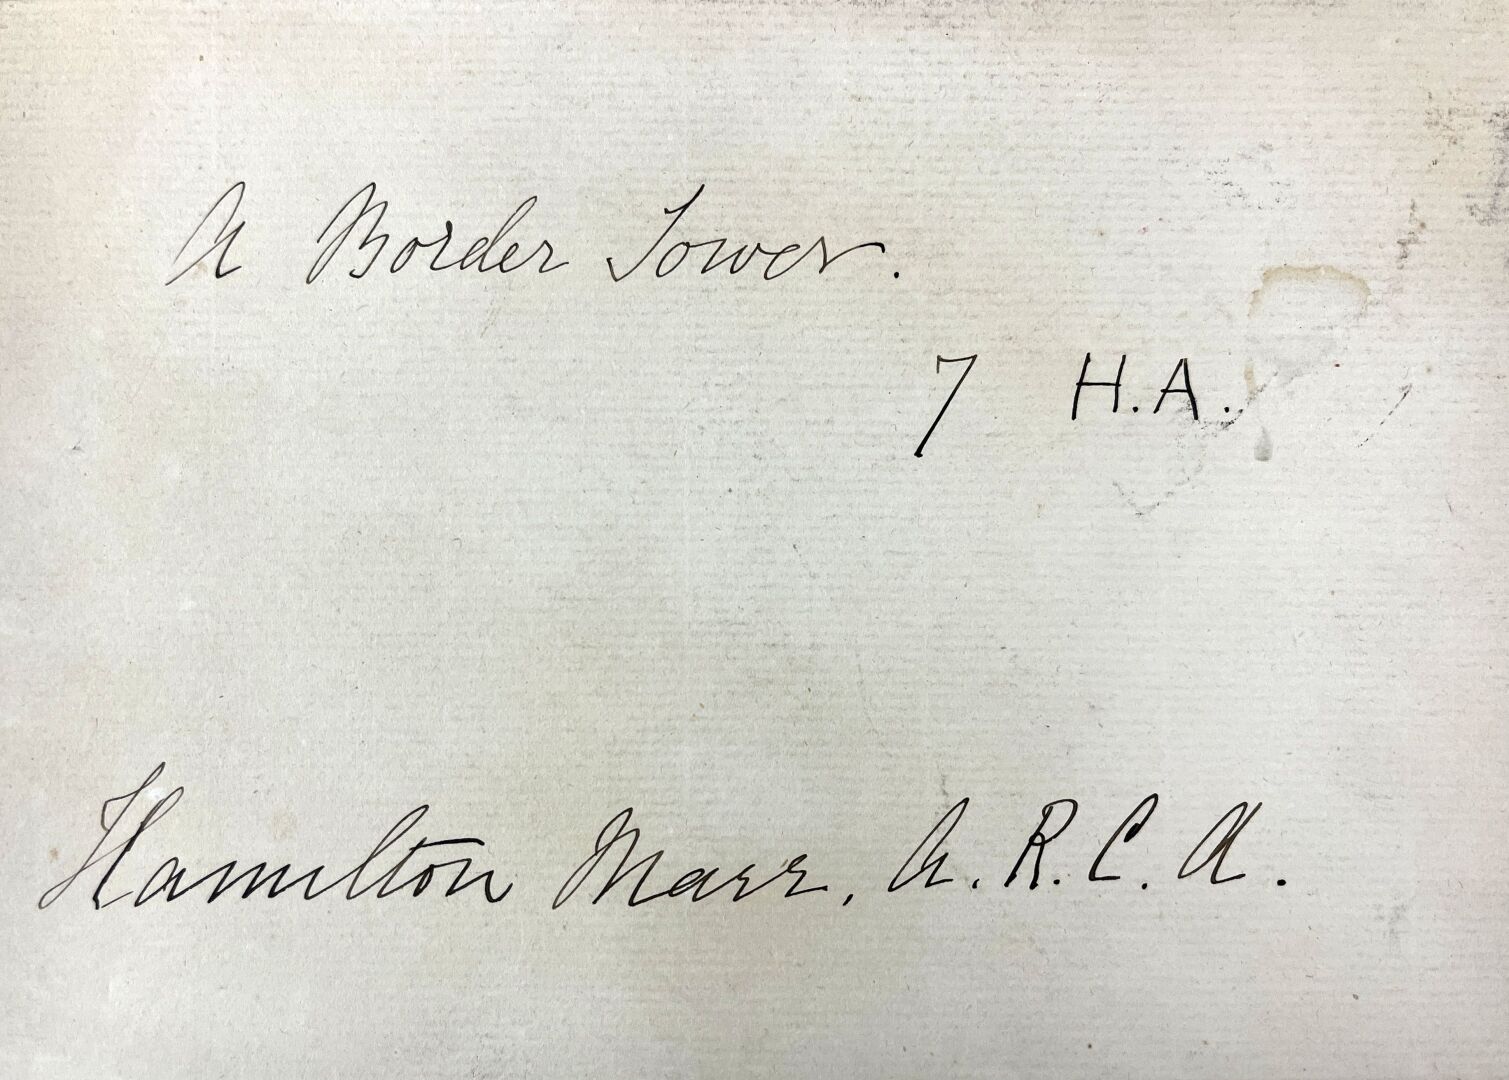 A Border Tower.
7 H.A.
Hamilton Marr, A.R.C.A.